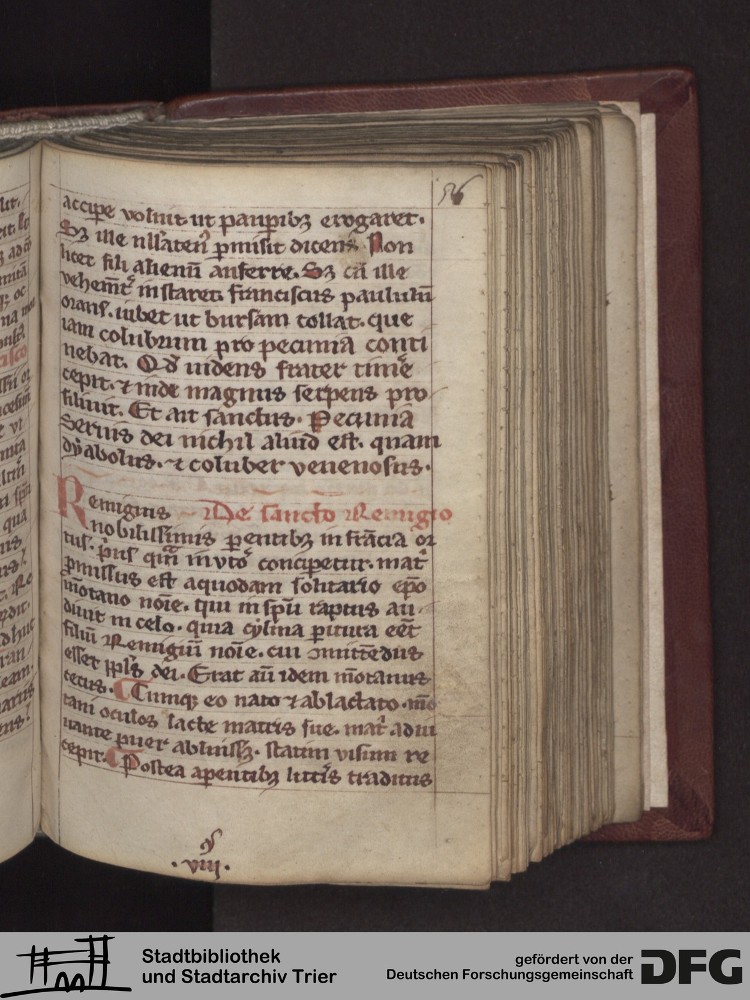 56
accipe voluit ut paupibꝫ erogaret.
Sꝫ ille nllaten9 pmisit dicens. Non
licet fili alienū auferre. Sꝫ cū ille
vehemēt instaret. franciscus paululū
orans. iubet ut bursam tollat. que
iam colubrum pro pecunia conti
nebat. Qd uidens frater timē
cepit. ⁊ inde magnus serpens pro
siliuit. Et ait sanctus. Pecunia
Seruis dei nichil aliud est. quam
dyabolus. ⁊ coluber venenosus.
Remigius De sancto Remigio
nobilissimis pentibꝫ in frācia or
tus. pus qm in vto concipetur. mat
pmissus est a quodam solitario epo
mōtano noīe. qui in spu raptus au
diuit in celo. quia cylina paritura eet
filiū Remigiū noīe. cui omittēdus
esset ppls dei. Erat au idem mōtanus
cecus. Cumqꝫ eo nato ⁊ ablactato. mō
tani oculos lacte matris sue. mat adiu
uante puer abluissꝫ. statim visum re
cepit. Postea a pentibꝫ littis traditus
.viij.
Stadtbibliothek
und Stadtarchiv Trier
gefördert von der
Deutschen Forschungsgemeinschaft
DFG